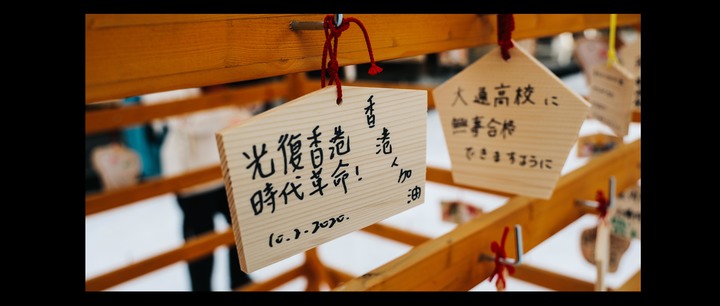 光復香港
時代革命!
香港人加油
10.2.2020.
大通高校に
無事合格
できますように